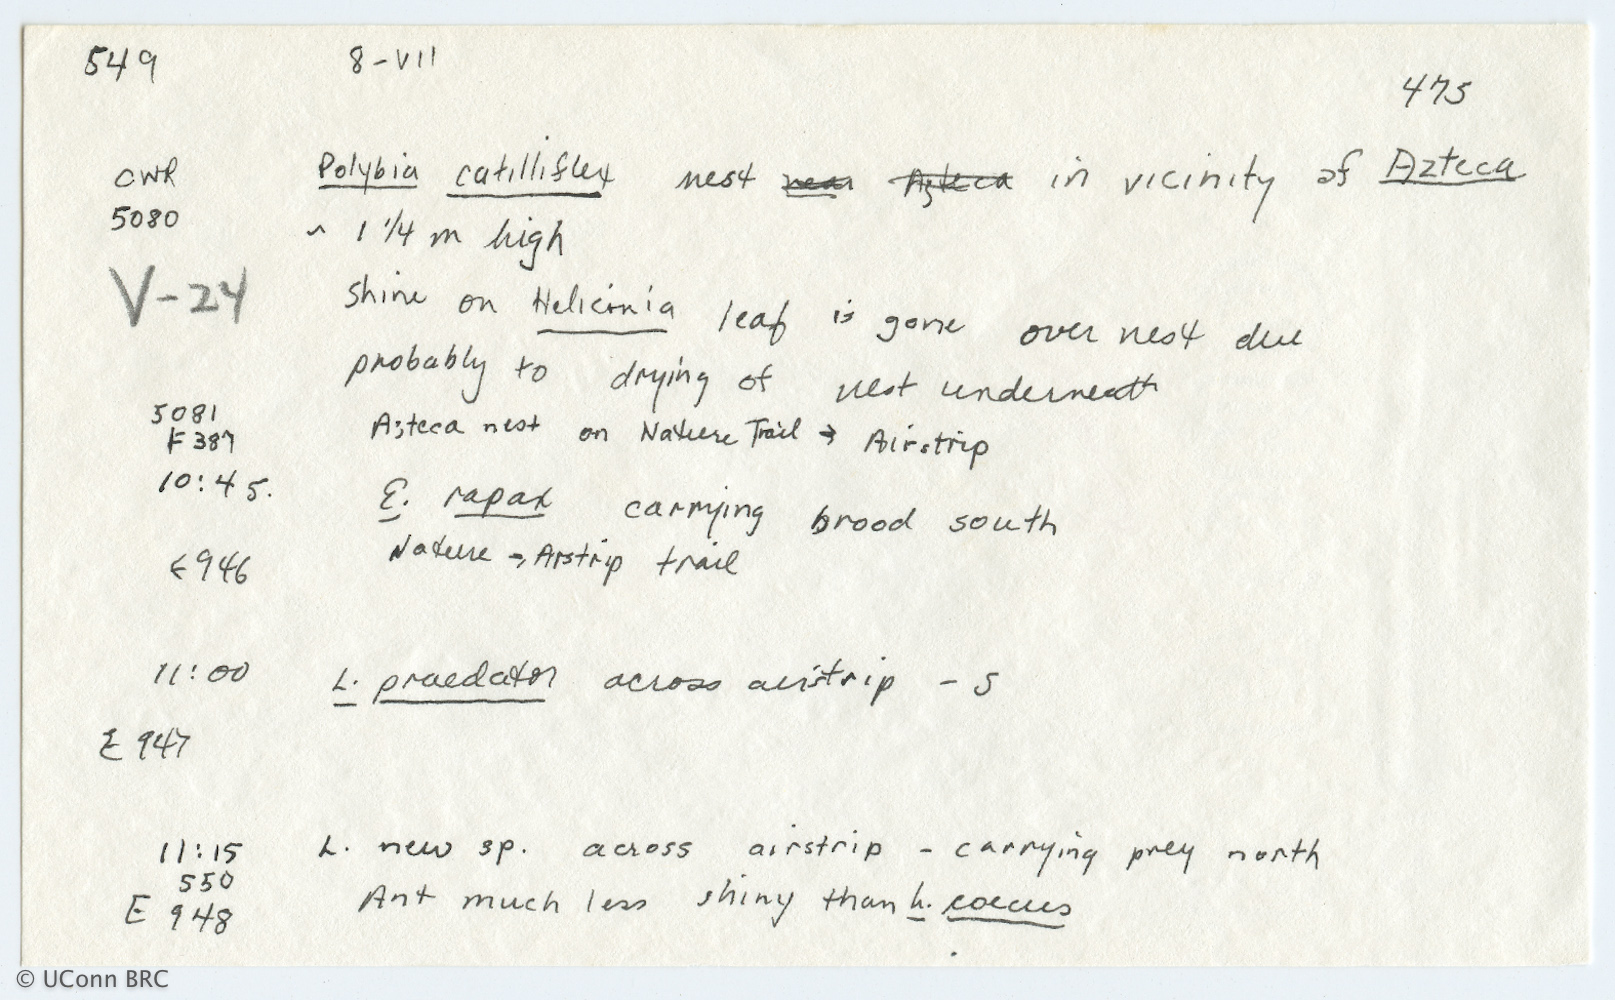 549 8-VII
475
CWR Polybia catillifex nest near Azteca in vicinity of Azteca
5080 ~ 1 1/4 m high
V-24 shine on Heliconia leaf is gone over nest due
probably to drying of nest underneath
5081 Azteca nest on Nature Trail → Airstrip
F 387
10:45. E. rapax carrying brood south
E 946 Nature → Arstrip trail
11:00 L. praedator across airstrip - S
E 947
11:15 L. new sp. across airstrip - carrying prey north
550
E 948 Ant much less shiny than L. coecus
© UConn BRC